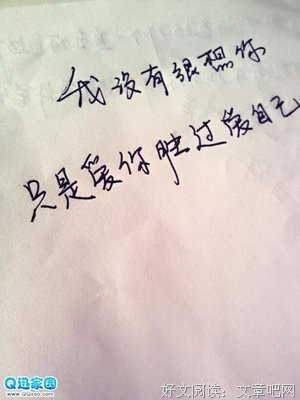 我没有很想你
只是爱你胜过爱自己
Q迅家园
www.QQxoo.com
好文阅读：文章吧网